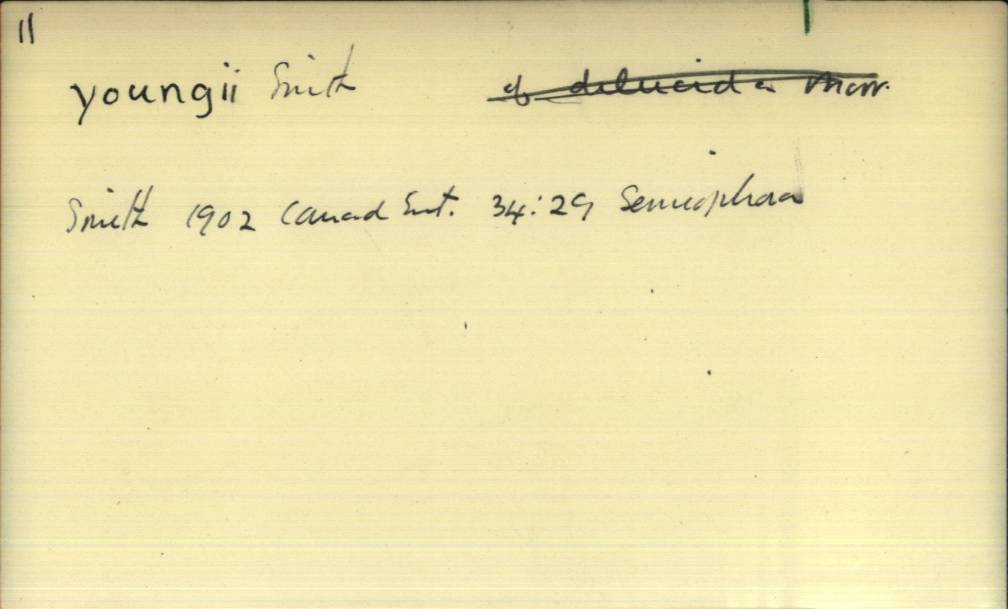 11
youngii Smith ~~of dilucida Morr.~~
Smith 1902 Canad Ent. 34:29 Semiophora